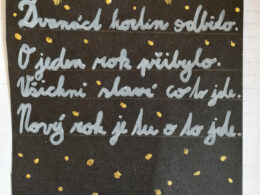 Dvanáct hodin odbilo.
O jeden rok přibylo.
Všichni slaví co to jde.
Nový rok je tu o to jde.